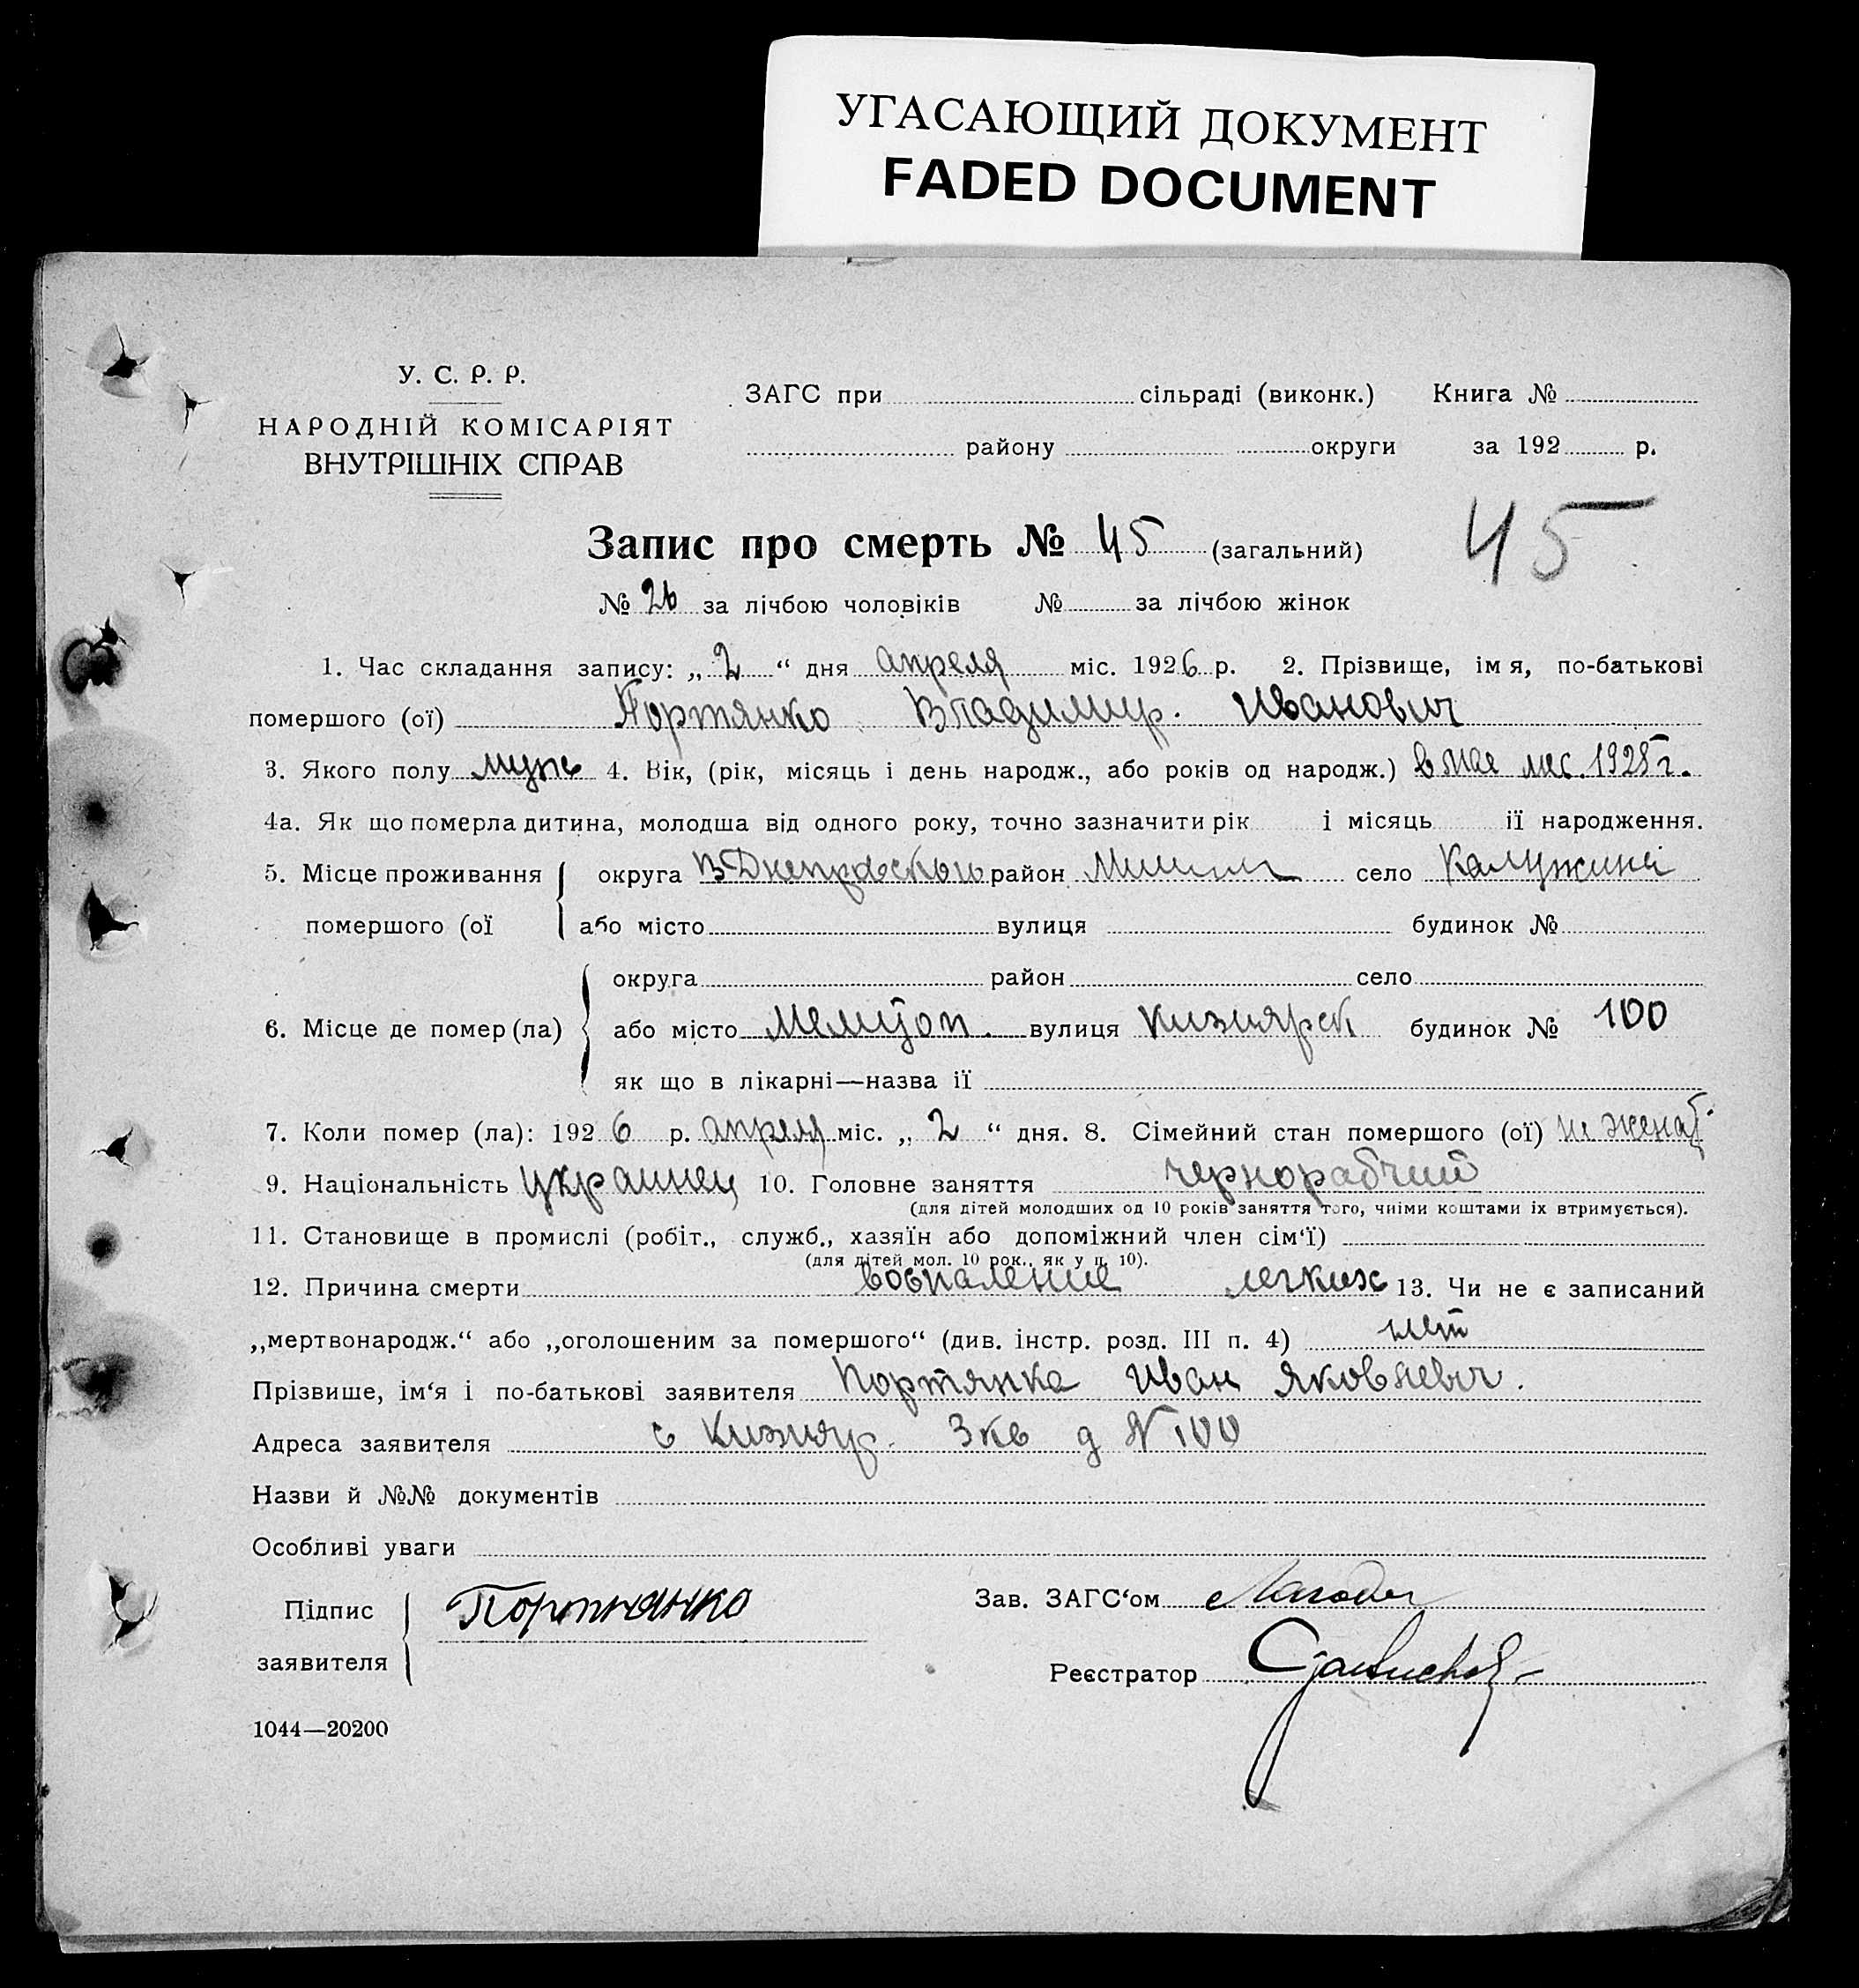 УГАСАЮЩИЙ ДОКУМЕНТ
FADED DOCUMENT
У. С. Р. Р.
НАРОДНІЙ КОМІСАРІЯТ
ВНУТРІШНІХ СПРАВ
ЗАГС при сільраді (виконк.) Книга №
району округи за 192 р.
45
Запис про смерть № 45 (загальний)
№ 26 за лічбою чоловіків № за лічбою жінок
1. Час складання запису: „ 2 “ дня апреля міс. 1926 р. 2. Прізвище, імя, по-батькові
помершого (ої) Портянко Владимир. Иванович
3. Якого полу муж 4. Вік, (рік, місяць і день народж., або років од народж.) в мае мес. 1925 г.
4а. Як що померла дитина, молодша від одного року, точно зазначити рік і місяць її народження.
5. Місце проживання округа район село
помершого (ої або місто вулиця будинок №
округа район село
6. Місце де помер (ла) або місто Мелитоп. вулиця Кизиярск будинок № 100
як що в лікарні—назва її
7. Коли помер (ла): 1926 р. апреля міс. „ 2 “ дня. 8. Сімейний стан помершого (ої) не женат
9. Національність украинец 10. Головне заняття чернорабчий
(для дітей молодших од 10 років заняття того, чиїми коштами їх втримується).
11. Становище в промислі (робіт., служб., хазяїн або допоміжний член сім‘ї)
(для дітей мол. 10 рок., як у п. 10).
12. Причина смерти воспаление легких 13. Чи не є записаний
„мертвонародж.“ або „оголошеним за помершого“ (див. інстр. розд. III п. 4) нет
Прізвише, ім‘я і по-батькові заявителя Портянко Иван Яковлевич.
Адреса заявителя с Кизияр. 3 кв д № 100
Назви й №№ документів
Особливі уваги
Підпис Портянко Зав. ЗАГС‘ом
заявителя Реєстратор
1044—20200